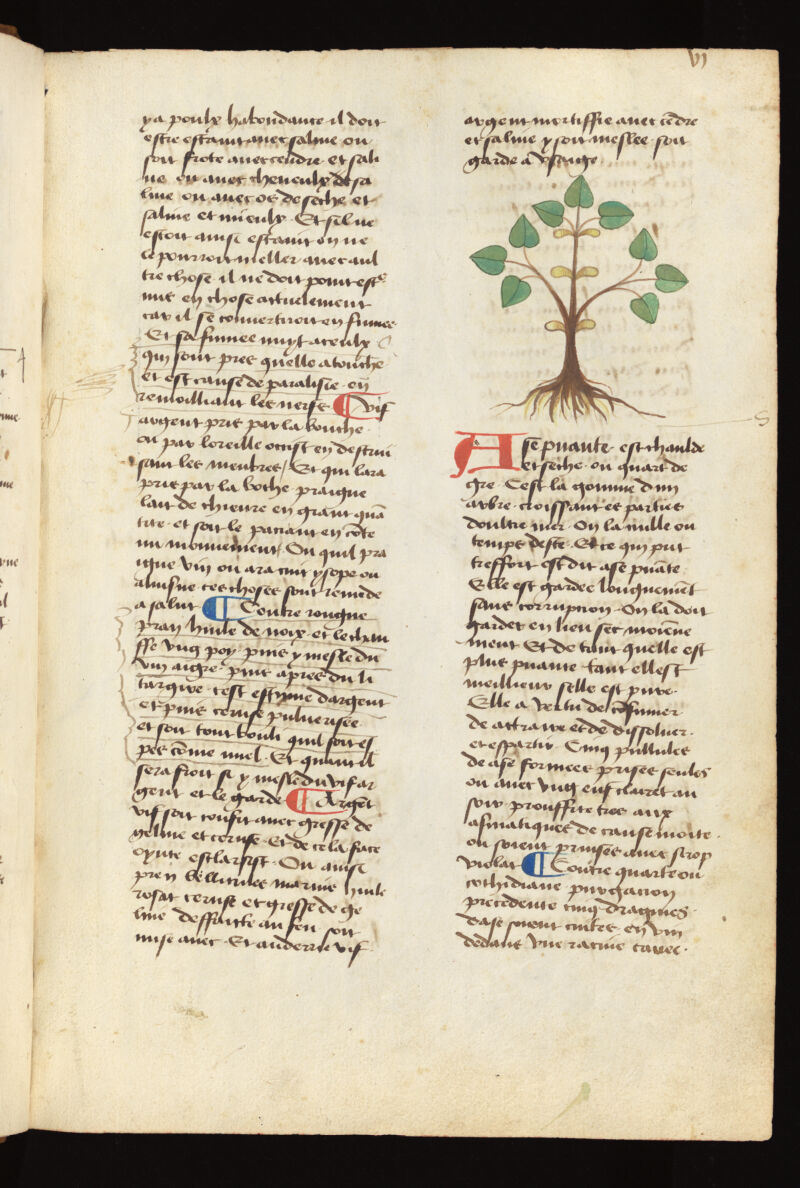 vi
y a poulx habondance il doit
estre estaint avec salive ou
soit frote avec cendre et sali
ve ou avec cheveulx et sa
live ou avec os de seche et
salive et mieulx Et sil ne
estoit ainsi estaint on ne
le pourroit meller avec aul
tre chose il ne doit point estre
mis en chose actuelement
car il se convertiroit en fumee
Et sa fumee nuyt a ceulx
qui sont pres quelle atouche
et est cause de paralisie en
remoilliant les nerfs ¶ Vif
argent pris par la bouche
ou par loreille occist en destrui
sant les membres Et qui lara
pris par la boche praigne
lait de chievre en grant quã
tite et soit le paciant en cõte
nu mouvement Ou quil pra
igne vin ou ara cuit ysope ou
aluisne ces choses sont remide
a salut ¶ Contre rongne
pran huile de noix et leschau
ffe ung poy puis y mesle du
vin aigre puis apres du li
targire cest escume dargent
et puis ceruse pulverisee
et soit tout bouli quil soit es
pes cõme miel Et quant il
sera froit si y mesle du vif ar
gent et le garde ¶ Argẽt
vif soit confit avec gresse de
geline et ceruse et de ce la face
ointe esclarsist Ou ainsi
pren bellicules marins huile
rosat ceruse et gresse de ge
line deffaicte au feu soit
mise avec Et au derrie vif
argent mortiffie avec cẽdre
et salive y soit meslee soit
garde a usaige
Ase puante est chaulde
et seche ou quart de
gre Cest la gomme dun
arbre croissant es parties
doultre mer On la cuille ou
temps deste Et ce qui put
tresfort est dit ase puãte
Elle est gardee longuemẽt
sans corrupcion On la doit
garder en lieu sec moiene
ment Et de tant quelle est
plus puante tant ell est
meilleur selle est pure
Elle a vertu de cõsumer
de attraire et de dissoluer
et espartir Cinq pillules
de ase formees prises seules
ou avec ung euf claret au
soir prouffite tres aux
asmatiques de cause moite
ou soient prinses avec sirop
violat ¶ Contre quarte ou
cothidiane purgacion
precedente cinq dragmes
dase soient cuites en vin
dedans une racine cavee